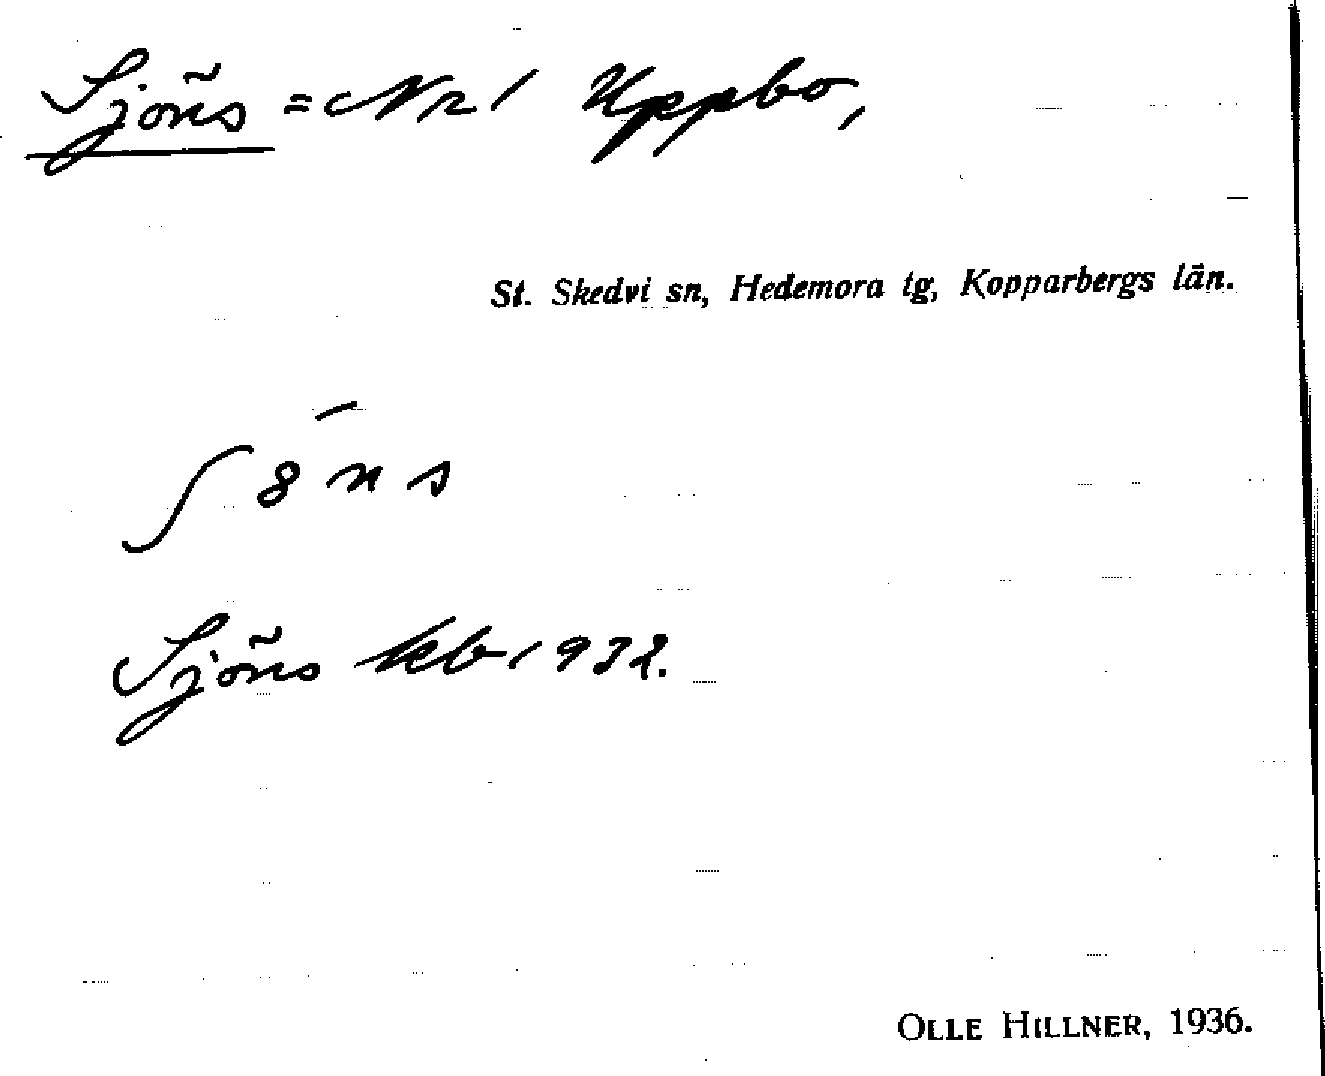 Sjöns = Nr 1 Uppbo,
St. Skedvi sn, Hedemora tg, Kopparbergs län.
ʃ 8 n̄ s
Sjöns kb 1932.
OLLE HILLNER, 1936.